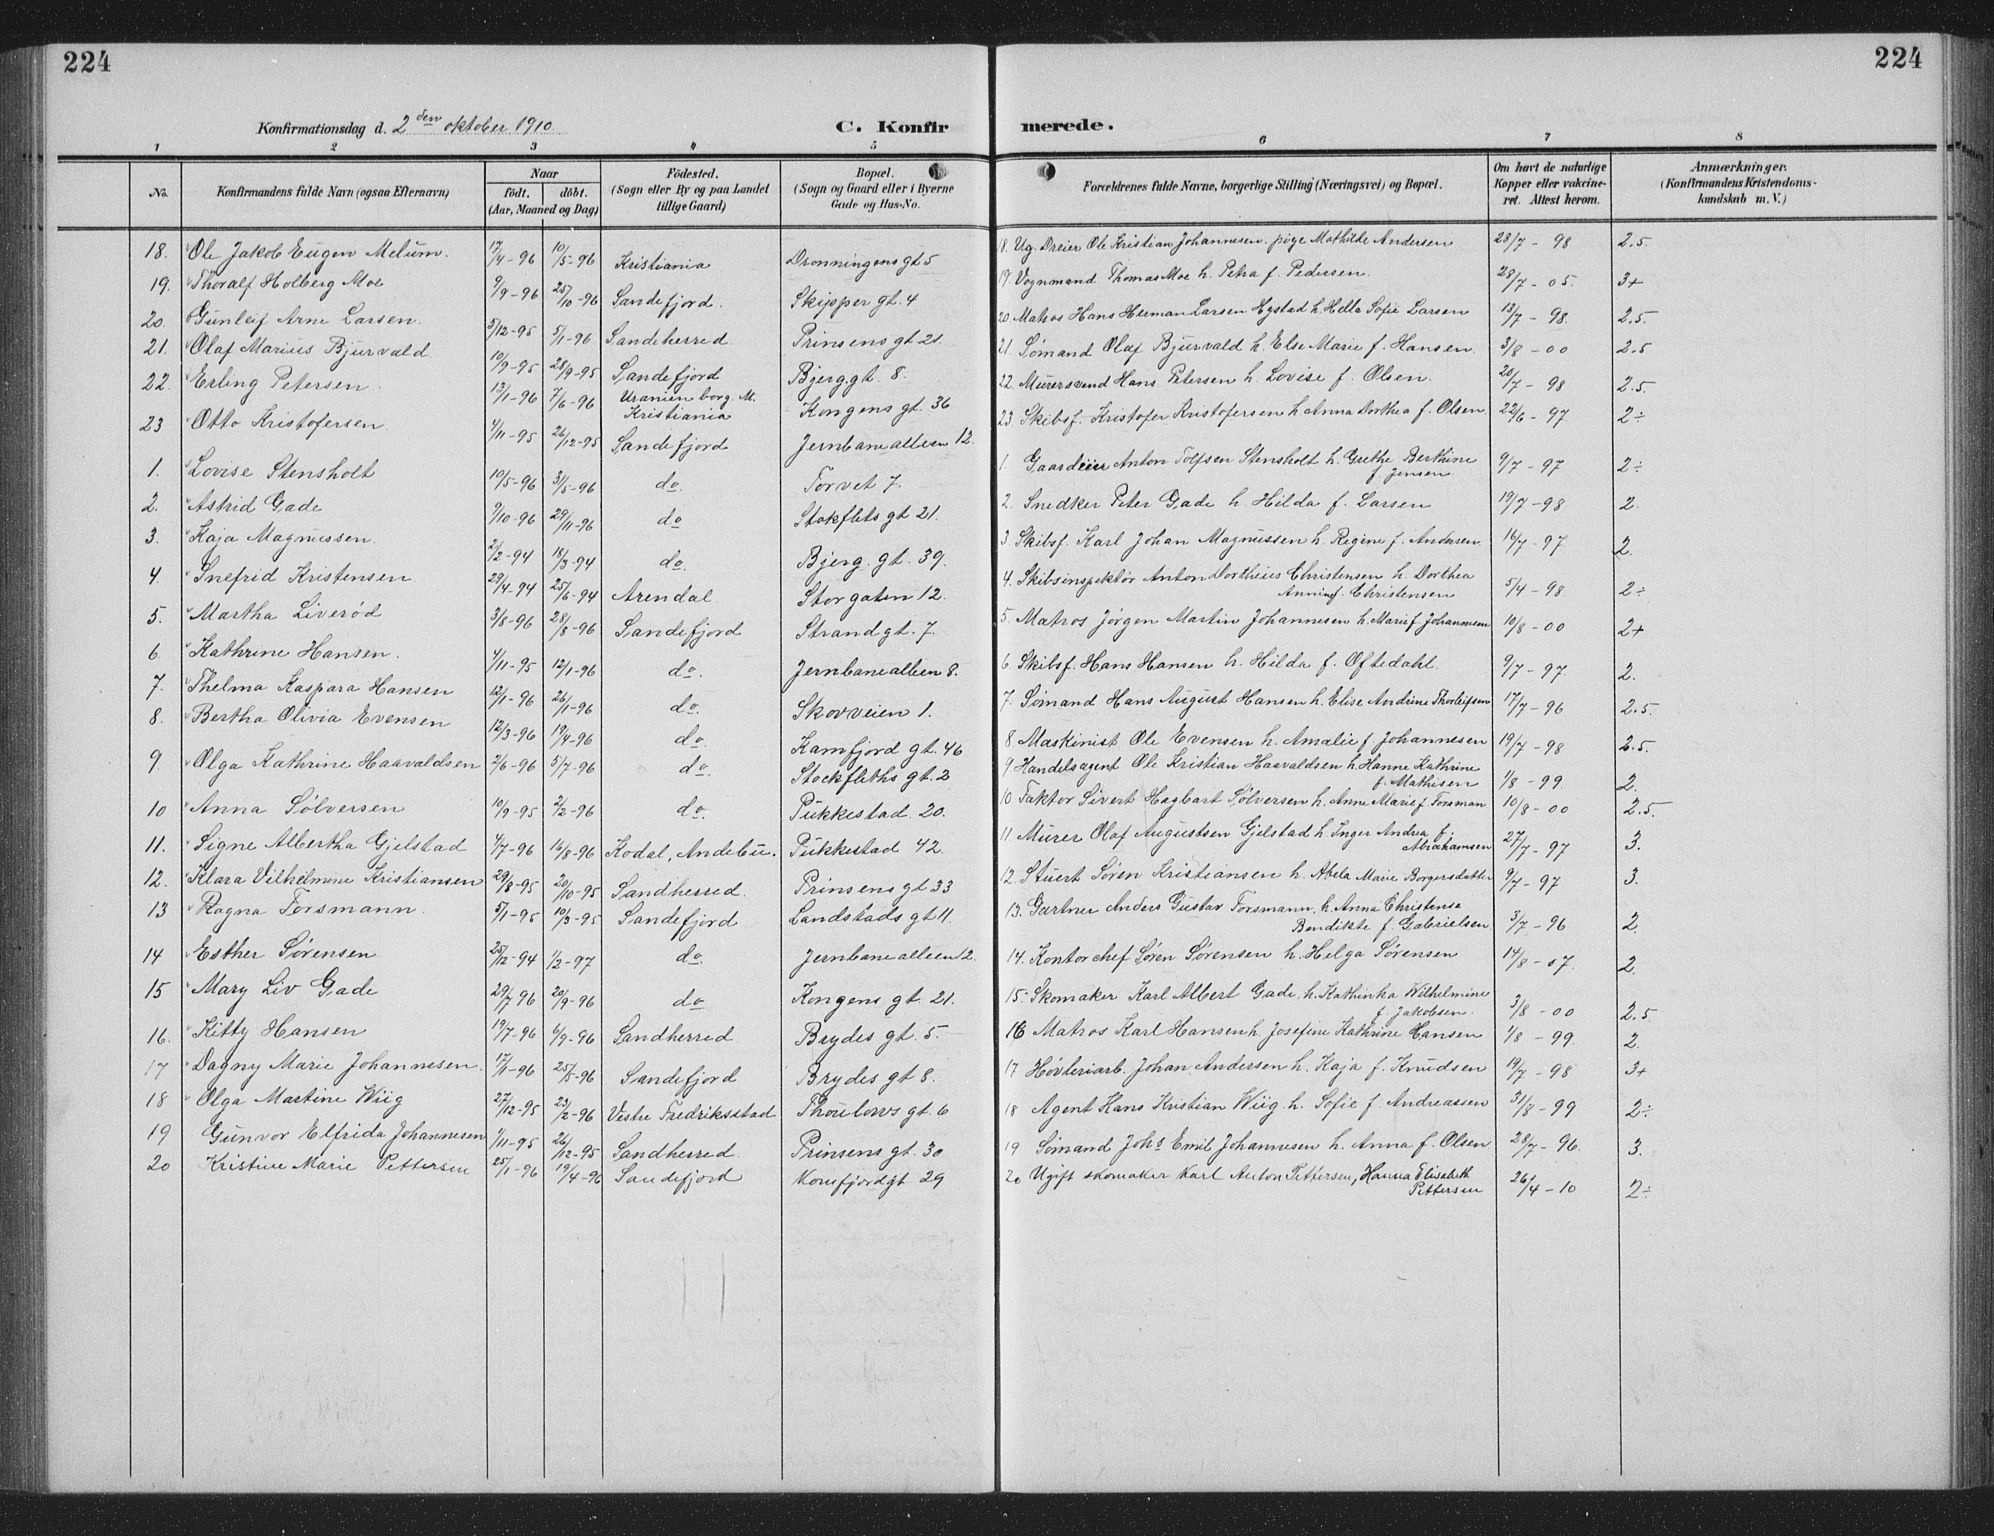 224
224
Konfirmationsdag d. 2den oktober 1910.
C. Konfir
merede.
1 2 3 4 5 6 7 8
No.
Konfirmandens fulde Navn (ogsaa Efternavn)
Naar
født. døbt.
(Aar, Maaned og Dag)
Födested.
(Sogn eller By og paa Landet
tillige Gaard)
Bopæl.
(Sogn og Gaard eller i Byerne
Gade og Hus-No.
Forældrenes fulde Navne, borgerlige Stilling (Næringsvei) og Bopæl.
Om havt de naturlige
Kopper eller vakcine-
ret. Attest herom.
Anmærkninger.
(Konfirmandens Kristendoms-
kundskab m. V.)
18. Ole Jakob Eugen Melum. 17/4-96 10/5-96 Kristiania Dronningens gt 5 18. Ug. Dreier Ole Kristian Johannesen, pige Mathilde Andersen 28/7-98 2.5
19. Thoralf Holberg Moe 9/9-96 25/10-96 Sandefjord. Skipper gt. 4 19. Vognmand Thomas Moe h. Petra f. Pedersen. 28/7-05. 3+
20. Gunleif Arne Larsen. 5/12-95 5/1-96 Sandeherred. Prinsens gt 21. 20. Matros Hans Herman Larsen Hystad h. Hella Sofie Larsen 13/7-98. 2.5.
21. Olaf Marius Bjurvald 10/9-95 28/9-95 Sandefjord Bjerggt. 8. 21. Sømand Olaf Bjurvald h. Else Marie f. Hansen. 3/8-00 2.5
22. Erling Petersen 13/1-96 7/6-96 Uranienborg M.
Kristiania Kongens gt. 36 22. Murersvend Hans Petersen h. Lovise f. Olsen. 20/7-98 2.5.
23 Otto Kristofersen 4/11-95 26/12-95 Sandefjord Jernbanealleen 12. 23. Skibsf. Kristofer Kristofersen h. Anna Dorthea f. Olsen 22/6-97. 2÷
1. Lovise Stensholt 10/5-96 31/5-96 do. Torvet 7. 1. Gaardeier Anton Tolfsen Stensholt h. Grethe Berthine
f. Jensen 9/7-97 2÷
2. Astrid Gade 9/10-96 29/11-96 do Stokflets gt 21. 2. Snedker Peter Gade h. Hilda f. Larsen 19/7-98 2.
3. Kaja Magnussen. 2/2-94 18/3-94 do. Bjerg. gt. 39. 3. Skibsf. Karl Johan Magnussen h. Regine f. Andersen. 16/7-97 2.
4. Snefrid Kristensen 29/4-94 25/6-94 Arendal. Storgaten 12. 4. Skibsinspektør Anton Dortheus Christensen h. Dorthea
Annine f. Christensen 5/4-98 2÷
5. Martha Liverød 3/8-96 28/8-96 Sandefjord Strandgt. 7. 5. Matros Jørgen Martin Johannesen h. Marie f. Johannesen 10/8-00 2+
6. Kathrine Hansen. 4/11-95 12/1-96 do. Jernbanealleen 8. 6 Skibsf. Hans Hansen h. Hilda f. Oftedahl. 9/7-97. 2.
7. Thelma Kaspara Hansen 12/1-96 26/1-96 do. Skovveien 1. 7. Sømand Hans August Hansen h. Elise Andrine Thorleifsen 17/7-96 2.5.
8. Bertha Olivia Evensen 12/3-96 19/4-96 do. Kamfjord gt. 46 8. Maskinist Ole Evensen h. Amalie f. Johannesen 19/7-98 2.5.
9 Olga Kathrine Haavaldsen 2/6-96 5/7-96 do. Stockfleths gt. 2 9. Handelsagent Ole Kristian Haavaldsen h. Hanne Kathrine
f. Mathisen 1/8-99 2.
10 Anna Sølversen 10/9-95 2/2-96 do. Pukkestad 20. 10 Faktor Sivert Hagbart Sølversen h. Anne Marie f. Forsman 10/8-00 2.5.
11. Signe Albertha Gjelstad 4/7-96 16/8-96 Kodal, Andebu. Pukkestad 42. 11. Murer Olaf Augustsen Gjelstad h. Inger Andrea f.
Abrahamsen 27/7-97 3.
12. Klara Vilhelmine Kristiansen 29/8-95 20/10-95 Sandherred. Prinsens gt 33 12. Stuert Søren Kristiansen h. Abela Marie Borgersdatter 9/7-97 3.
13 Ragna Forsmann. 5/1-95 10/3-95 Sandefjord Landstads gt 11. 13. Gartner Anders Gustav Forsmann, h. Anna Christense
Bendikte f. Gabrielsen 3/7-96 2.
14 Esther Sørensen 25/12-94 1/2-97 do. Jernbanealleen 12. 14. Kontorchef Søren Sørensen h. Helga Sørensen 14/8-07. 2.
15 Mary Liv Gade 29/7-96 20/9-96 do Kongens gt. 21. 15. Skomaker Karl Albert Gade h. Kathinka Wilhelmine
f. Jakobsen. 3/8-00 2.5
16. Kitty Hansen 19/7-96 6/9-96 Sandherred Brydes gt. 5. 16 Matros Karl Hansen h. Josefine Kathrine Hansen 1/8-99. 2.
17 Dagny Marie Johannesen. 17/1-96 25/5-96 Sandefjord Brydes gt 8. 17 Høvleriarb. Johan Andersen h. Kaja f. Knudsen 19/7-98 3+
18 Olga Martine Wiig 27/12-95 23/2-96 Vestre Fredriksstad Thoulows gt. 6 18 Agent Hans Kristian Wiig h. Sofie f. Andreassen 31/8-99 2÷
19 Gunvor Elfrida Johannesen 1/11-95 26/12-95 Sandherred. Prinsens gt. 30 19 Sømand Johs Emil Johannesen h. Anna f. Olsen 28/7-96. 3.
20 Kristine Marie Pettersen 25/1-96 19/4-96 Sandefjord Kamfjordgt 29 20 Ugift skomaker Karl Anton Pettersen, Hanna Elisabeth
Pettersen 26/4-10 2÷